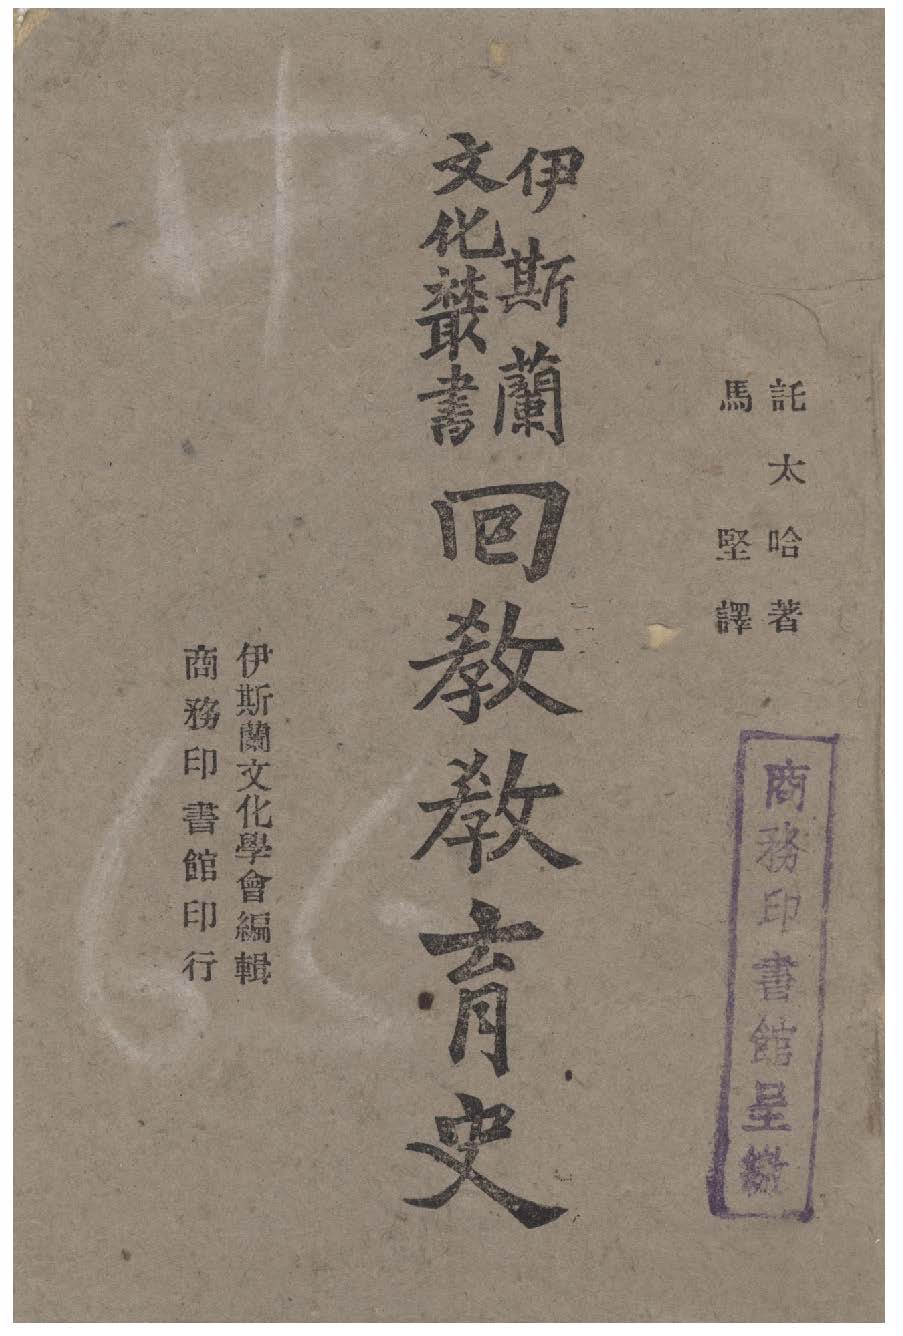 託太哈著
馬堅譯
伊斯蘭
文化叢書
回教教育史
伊斯蘭文化學會編輯
商務印書館印行
商務印書館呈繳